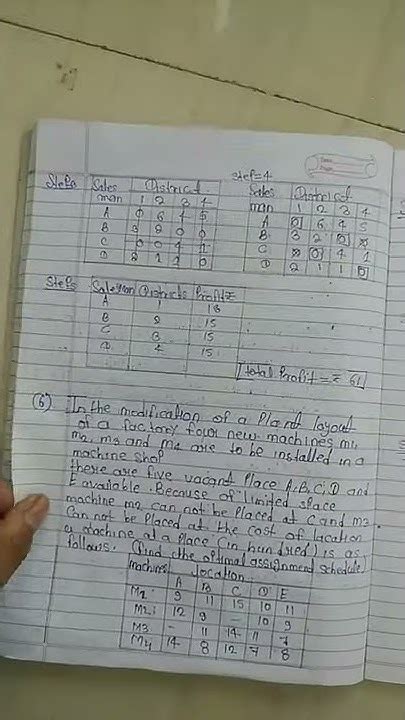 Step=4
Sales man District
1 2 3 4
A 0 6 4 5
B 3 2 0 0
C 0 0 4 1
D 2 1 1 0
Sales man District
1 2 3 4
A 0 6 4 5
B 3 2 0 0
C 0 0 4 1
D 2 1 1 0
Salesman Districts Profit ₹
A
B 15
C 3 15
D 4 15
Total Profit = ₹ 61
(6) In the modification of a Plant layout
of a factory four new machines m1,
m2, m3 and m4 are to be installed in a
machine shop
there are five vacant Place A, B, C, D and
E available. Because of limited space
machine m2 can not be placed at C and m3
Can not be Placed at the cost of location
a machine at a Place (in hundred) is as
follows. (Find the optimal assignment schedule)
machines Location
A B C D E
M1: 9 11 15 10 11
M2: 12 9 - 10 9
M3 - 11 14 11 7
M4 14 8 12 7 8